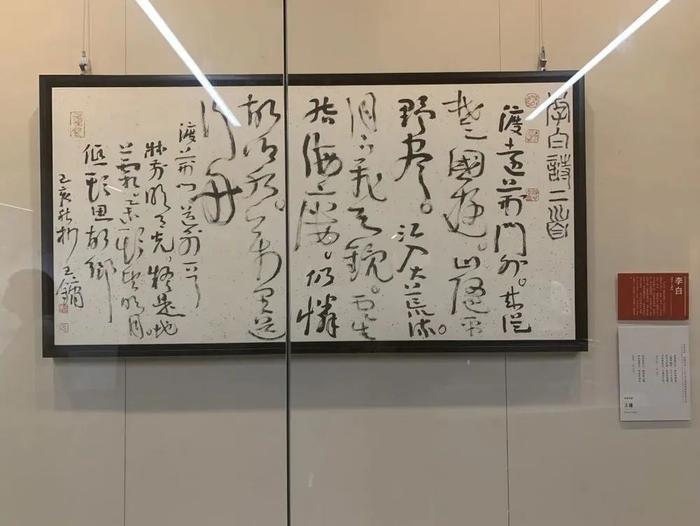 李白詩二首
渡遠荊門外。來從
楚國遊。山隨平
野盡。江入大荒流。
月下飛天鏡。雲生
結海樓。仍憐
故鄉水。萬里送
行舟
渡荊門送別一首
牀前明月光。疑是地
上霜。舉頭望明月
低頭思故鄉
己亥秋杪 王鏞
李白
王镛